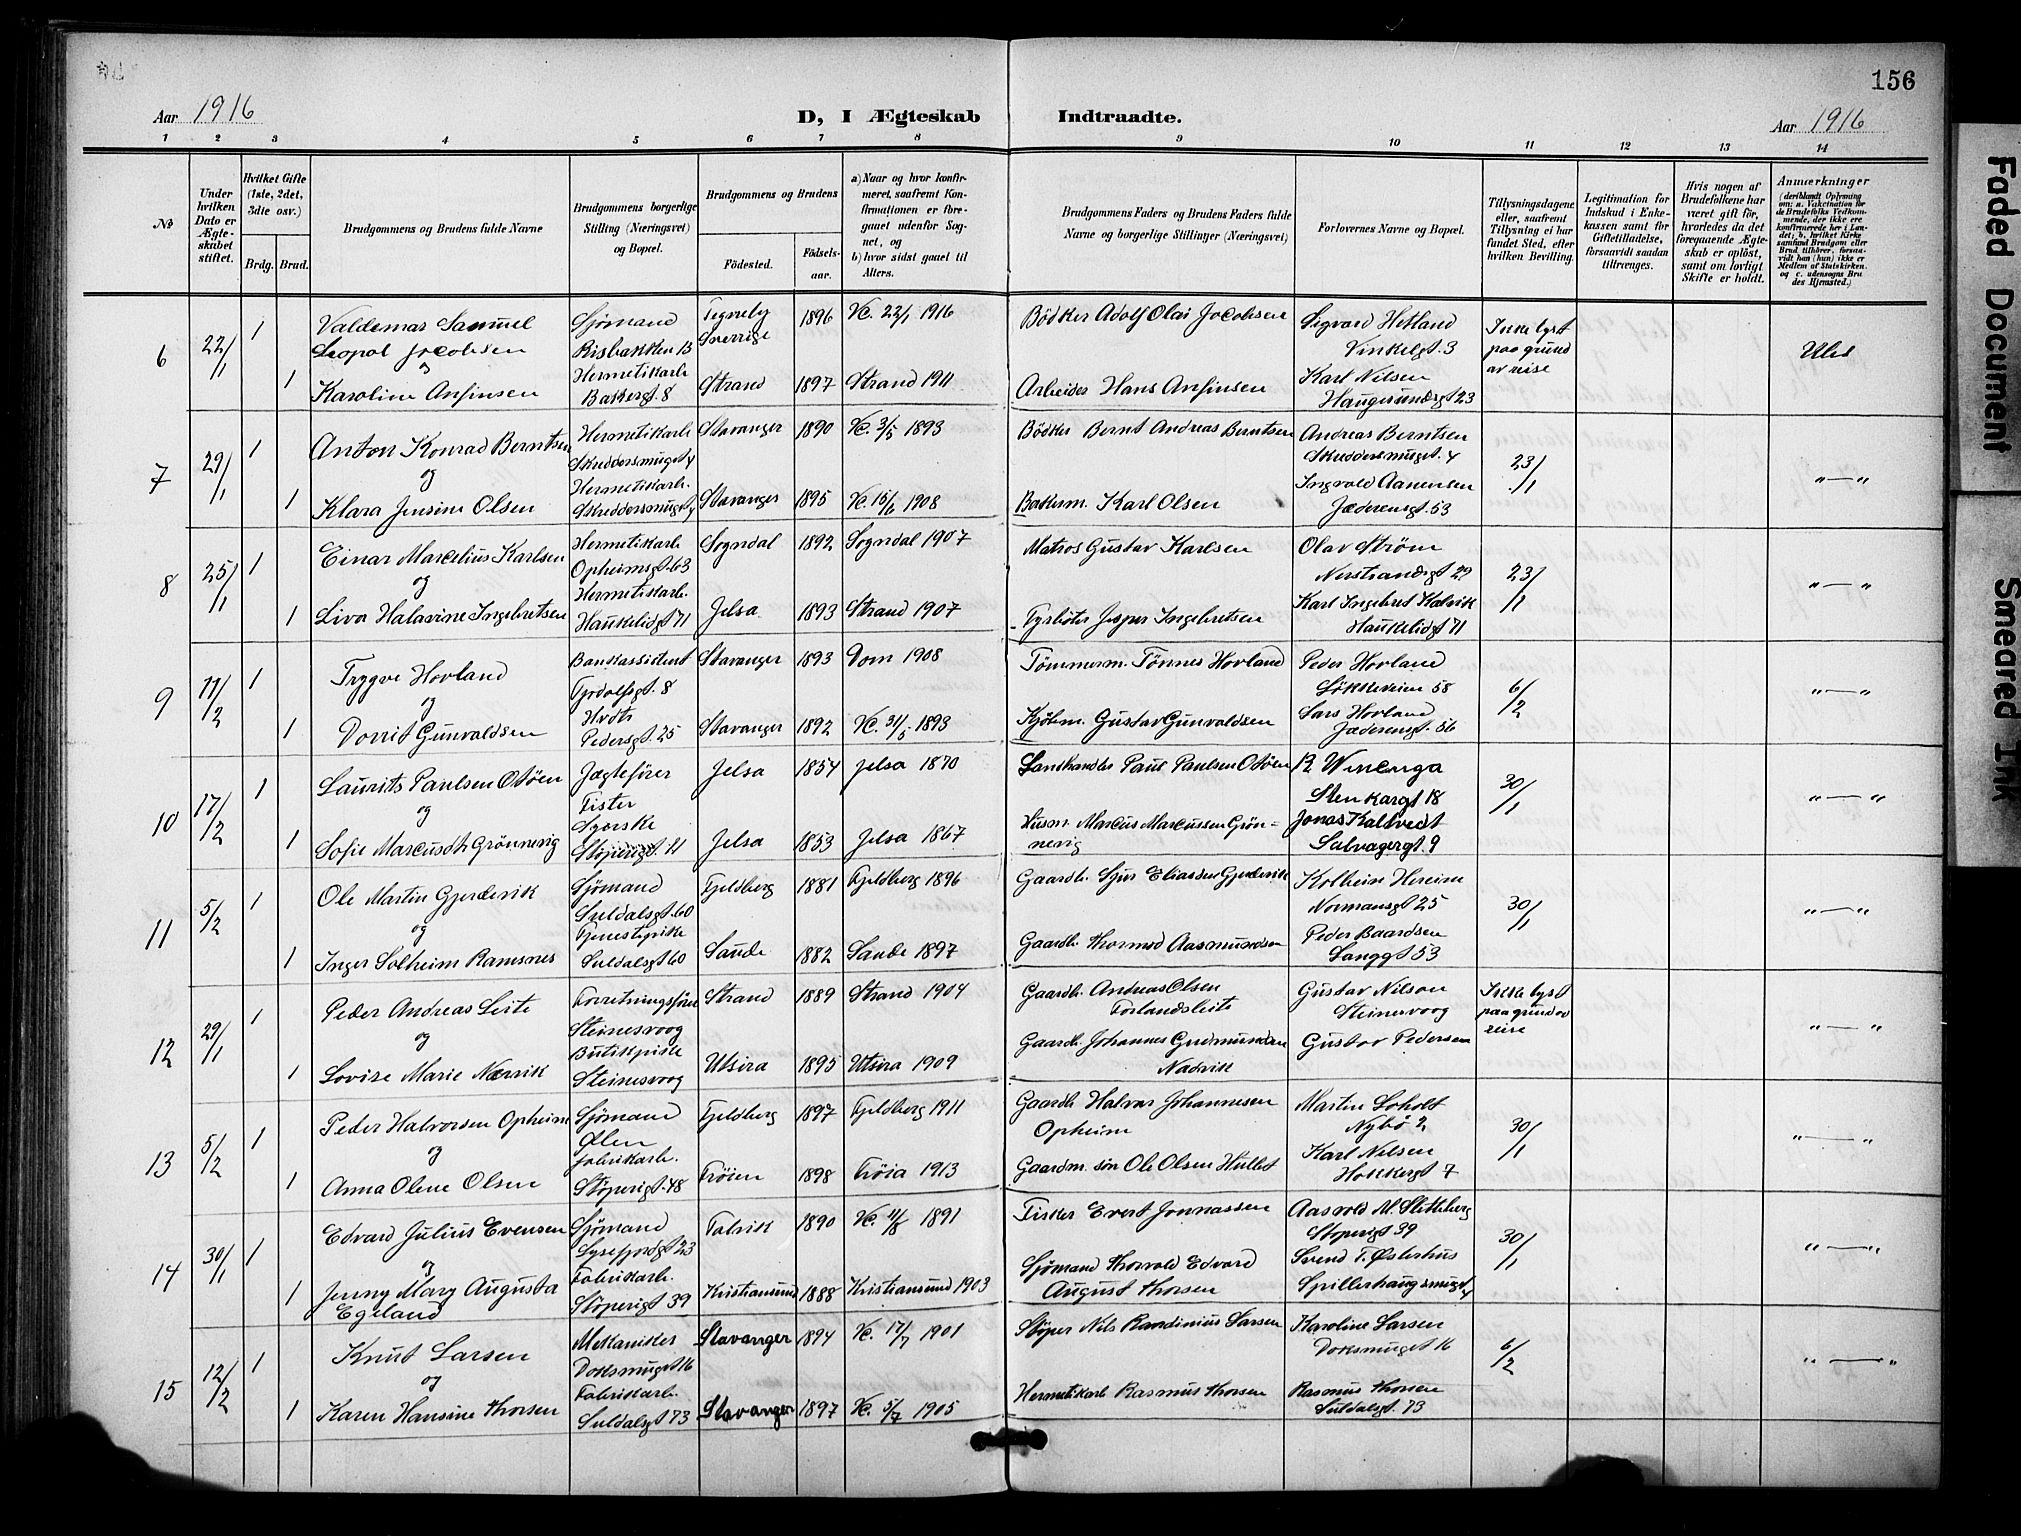 156
Aar 1916
D, I Ægteskab Indtraadte.
Aar 1916
1 2 3 4 5 6 7 8 9 10 11 12 13 14
№
Under hvilken Dato er Ægteskabet stiftet.
Hvilket Gifte (1ste, 2det, 3die osv.)
Brdg. Brud.
Brudgommens og Brudens fulde Navne
Brudgommens borgerlige Stilling (Næringsvei) og Bopæl.
Brudgommens og Brudens
Fødested.
Fødselsaar.
a) Naar og hvor konfirmeret, saafremt Konfirmationen er foregaaet udenfor Sognet, og
b) hvor sidst gaaet til Alters.
Brudgommens Faders og Brudens Faders fulde Navne og borgerlige Stillinger (Næringsvei)
Forlovernes Navne og Bopæl.
Tillysningsdagene eller, saafremt Tillysning ei har fundet Sted, efter hvilken Bevilling.
Legitimation for Indskud i Enkekassen samt for Giftetilladelse, forsaavidt saadan tiltrænges.
Hvis nogen af Brudefolkene har været gift før, hvorledes da det foregaaende Ægteskab er opløst, samt om lovligt Skifte er holdt.
Anmærkninger (deriblandt Oplysning om: a. Vakcination for de Brudefolks Vedkommende, der ikke ere konfirmerede her i Landet; b. hvilket Kirkesamfund Brudgom eller Brud tilhører, forsaavidt han (hun) ikke er Medlem af Statskirken, og c. udensogns Brudes Hjemsted.)
6 22/1 1 Valdemar Samuel Leopol Jacobsen Sjømand Risbakken 13 Tegneby Sverrige 1896 Vc. 22/1 1916 Bödker Adolf Olai Jacobsen Sigvard Hetland Vinkelgt. 3 Ikke lyst paa grund av reise
og
1 Karoline Anfinsen Hermetikarb Bakergt. 8 Strand 1897 Strand 1911 Arbeider Hans Anfinsen Karl Nilsen Haugesundsgt 23
7 29/1 1 Anton Konrad Berntsen Hermetikarb Skreddersmuget 4 Stavanger 1890 Vc. 3/5 1893 Bödker Bernt Andreas Berntsen Andreas Berntsen Skreddersmuget. 4 23/1 „ — „
og
1 Klara Jensine Olsen Hermetikarb. Skreddersmuget 4 Stavanger 1895 Vc. 15/6 1908 Bakerm. Karl Olsen Ingvald Aanensen Jæderensgt. 53
8 25/1 1 Einar Marcelius Karlsen Hermetikarb Opheimsgt. 63 Sogndal 1892 Sogndal 1907 Matros Gustav Karlsen Olav Strøm Nerstrandsgt 29 23/1 „ — „
og
1 Liva Halavine Ingebretsen Hermetikarb. Haukelidgt 71 Jelsa 1893 Strand 1907 Fyrbøter Jesper Ingebretsen Karl Ingebret Kalvik Haukelidgt 71
9 11/2 1 Trygve Hovland Bankassistent Fjordolfsgt. 8 Stavanger 1893 Dom 1908 Tömmerm. Tönnes Hovland Peder Hovland Lökkeveien 58 6/2 „ — „
og
1 Dorrit Gunvaldsen Hvdtr Pedersgt. 25 Stavanger 1892 Vc. 31/5 1893 Kjöbm. Gustav Gunvaldsen Lars Hovland Jæderensgt. 56
10 17/2 1 Laurits Paulsen Otöen Jægtefører Jelsa 1854 Jelsa 1870 Landhandler Paul Paulsen Otöen Stenkargt 18 30/1 „ — „
og
1 Sofie Marcusdt. Grönnevig Syerske Støperigt. 11 Jelsa 1853 Jelsa 1867 Husm. Marcus Marcussen Grönnevig Jonas Kaltvedt Salvagergt. 9
11 5/2 1 Ole Martin Gjerdevik Sjømand Suldalsgt. 60 Fjeldberg 1881 Fjeldberg 1896 Gaardb. Sjur Eliassen Gjerdevik Kolbein Hereim Normansgt 25 30/1 „ — „
og
1 Inger Solheim Ramsnes Tjenestepike Suldalsgt 60 Saude 1882 Saude 1897 Gaardb. Thormod Aasmundsen Peder Baardsen Langgt 53
12 29/1 1 Peder Andreas Leite Forretningsfører Steinesvoog Strand 1889 Strand 1904 Gaardb. Andreas Olsen Forlandsleite Gustav Nilson Steinesvoog Ikke lyst paa grund av reise „ — „
og
1 Lovise Marie Nærvik Butikpike Steinesvoog Utsira 1895 Utsira 1909 Gaardb. Johannes Gudmundsen Nadvik Gustav Pedersen
13 5/2 1 Peder Halvorsen Opheim Sjømand Ølen Fjeldberg 1897 Fjeldberg 1911 Gaardb. Halvar Johannesen Opheim Martin Soholt Nybö 2 30/1 „ — „
og
1 Anna Olene Olsen Fabrikarb. Støperigt. 48 Fröien 1898 Fröia 1913 Gaardm. sön Ole Olsen Karl Nilsen Hokkergt 7
14 30/1 1 Edvard Julius Evensen Sjømand Lysefjordgt 23 Talvik 1890 1891 Fisker Evert Jonnassen Aasvold M. Sletteberg Støperigt 39 30/1 „ — „
og
1 Jenny Mary Augusta Egeland Fabrikarb. Støperigt 39 Kristiansund 1888 Kristiansund 1903 Sjømand Thorvald Edvard August Thorsen Svend T. Østerhus Spilderhaugsmuget 4
15 12/2 1 Knut Larsen Mekaniker Doksmuget 16 Stavanger 1894 Vc. 17/7 1901 Støper Nils Randinius Larsen Karoline Larsen Doksmuget 16 6/2 „ — „
og
1 Karen Hansine Thorsen Fabrikarb. Suldalsgt 73 Stavanger 1897 Vc. 5/7 1905 Hermetikarb Rasmus Thorsen Rasmus Thorsen Suldalsgt. 73
Faded Document
Smeared Ink